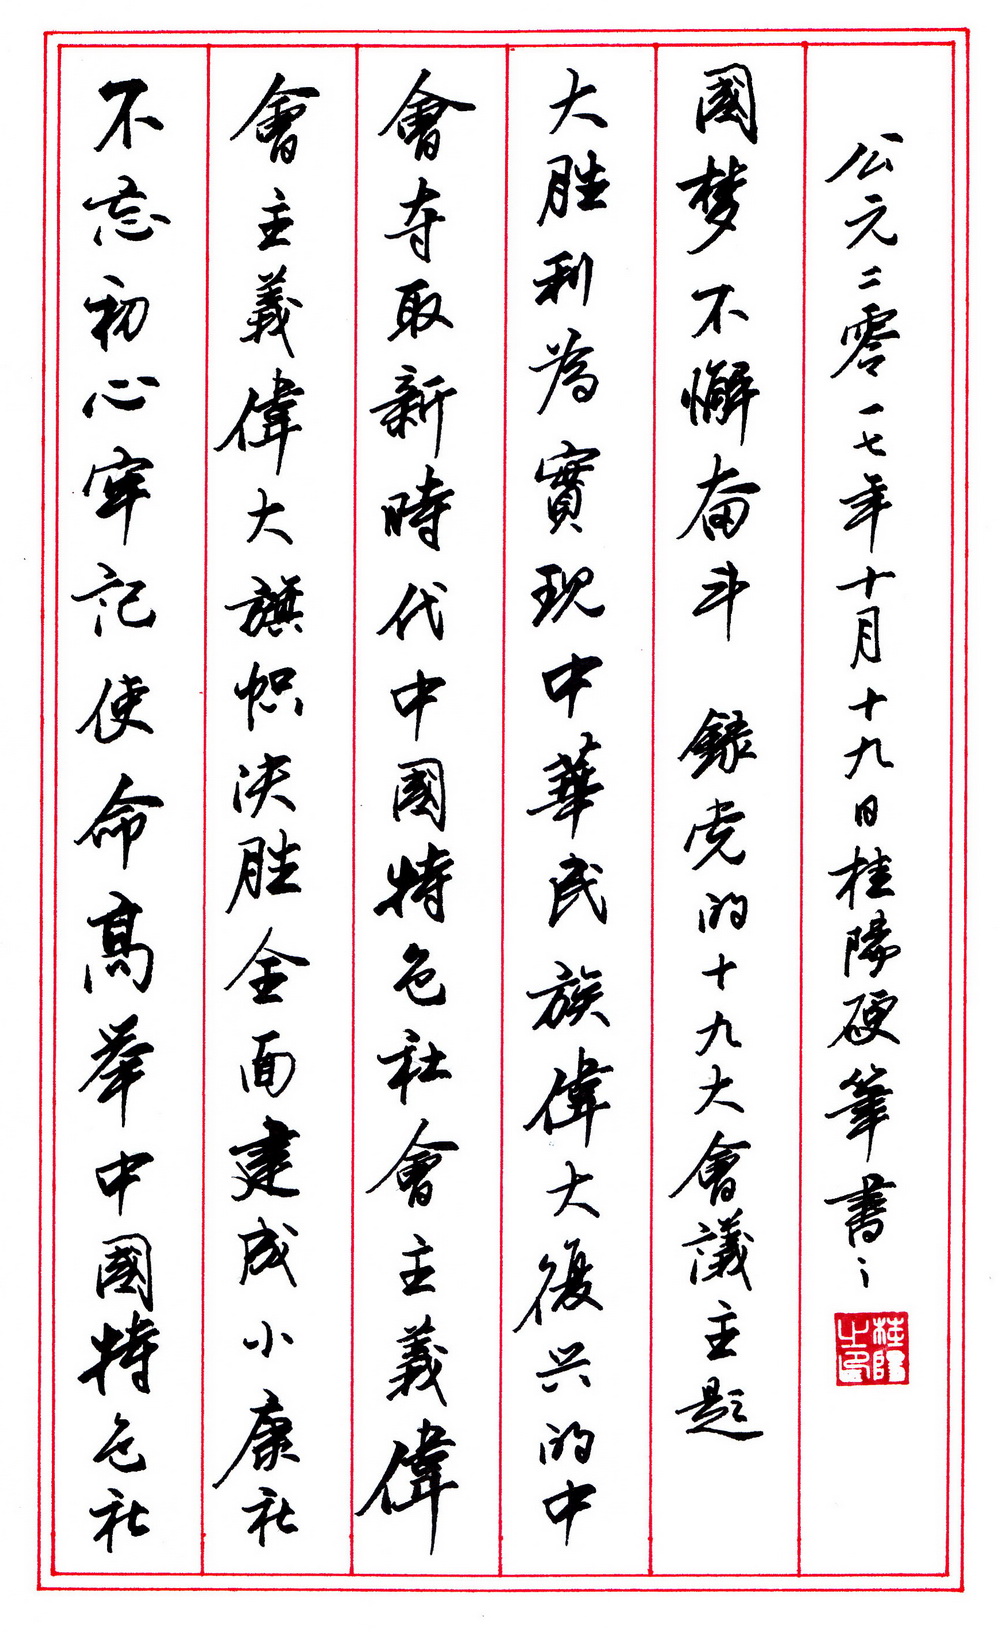 不忘初心牢記使命高举中國特色社
會主義偉大旗帜决胜全面建成小康社
會夺取新時代中國特色社會主義偉
大胜利為實现中華民族偉大復兴的中
國梦不懈奋斗 録党的十九大會議主題
公元二零一七年十月十九日桂陽硬筆書之
桂陽之印